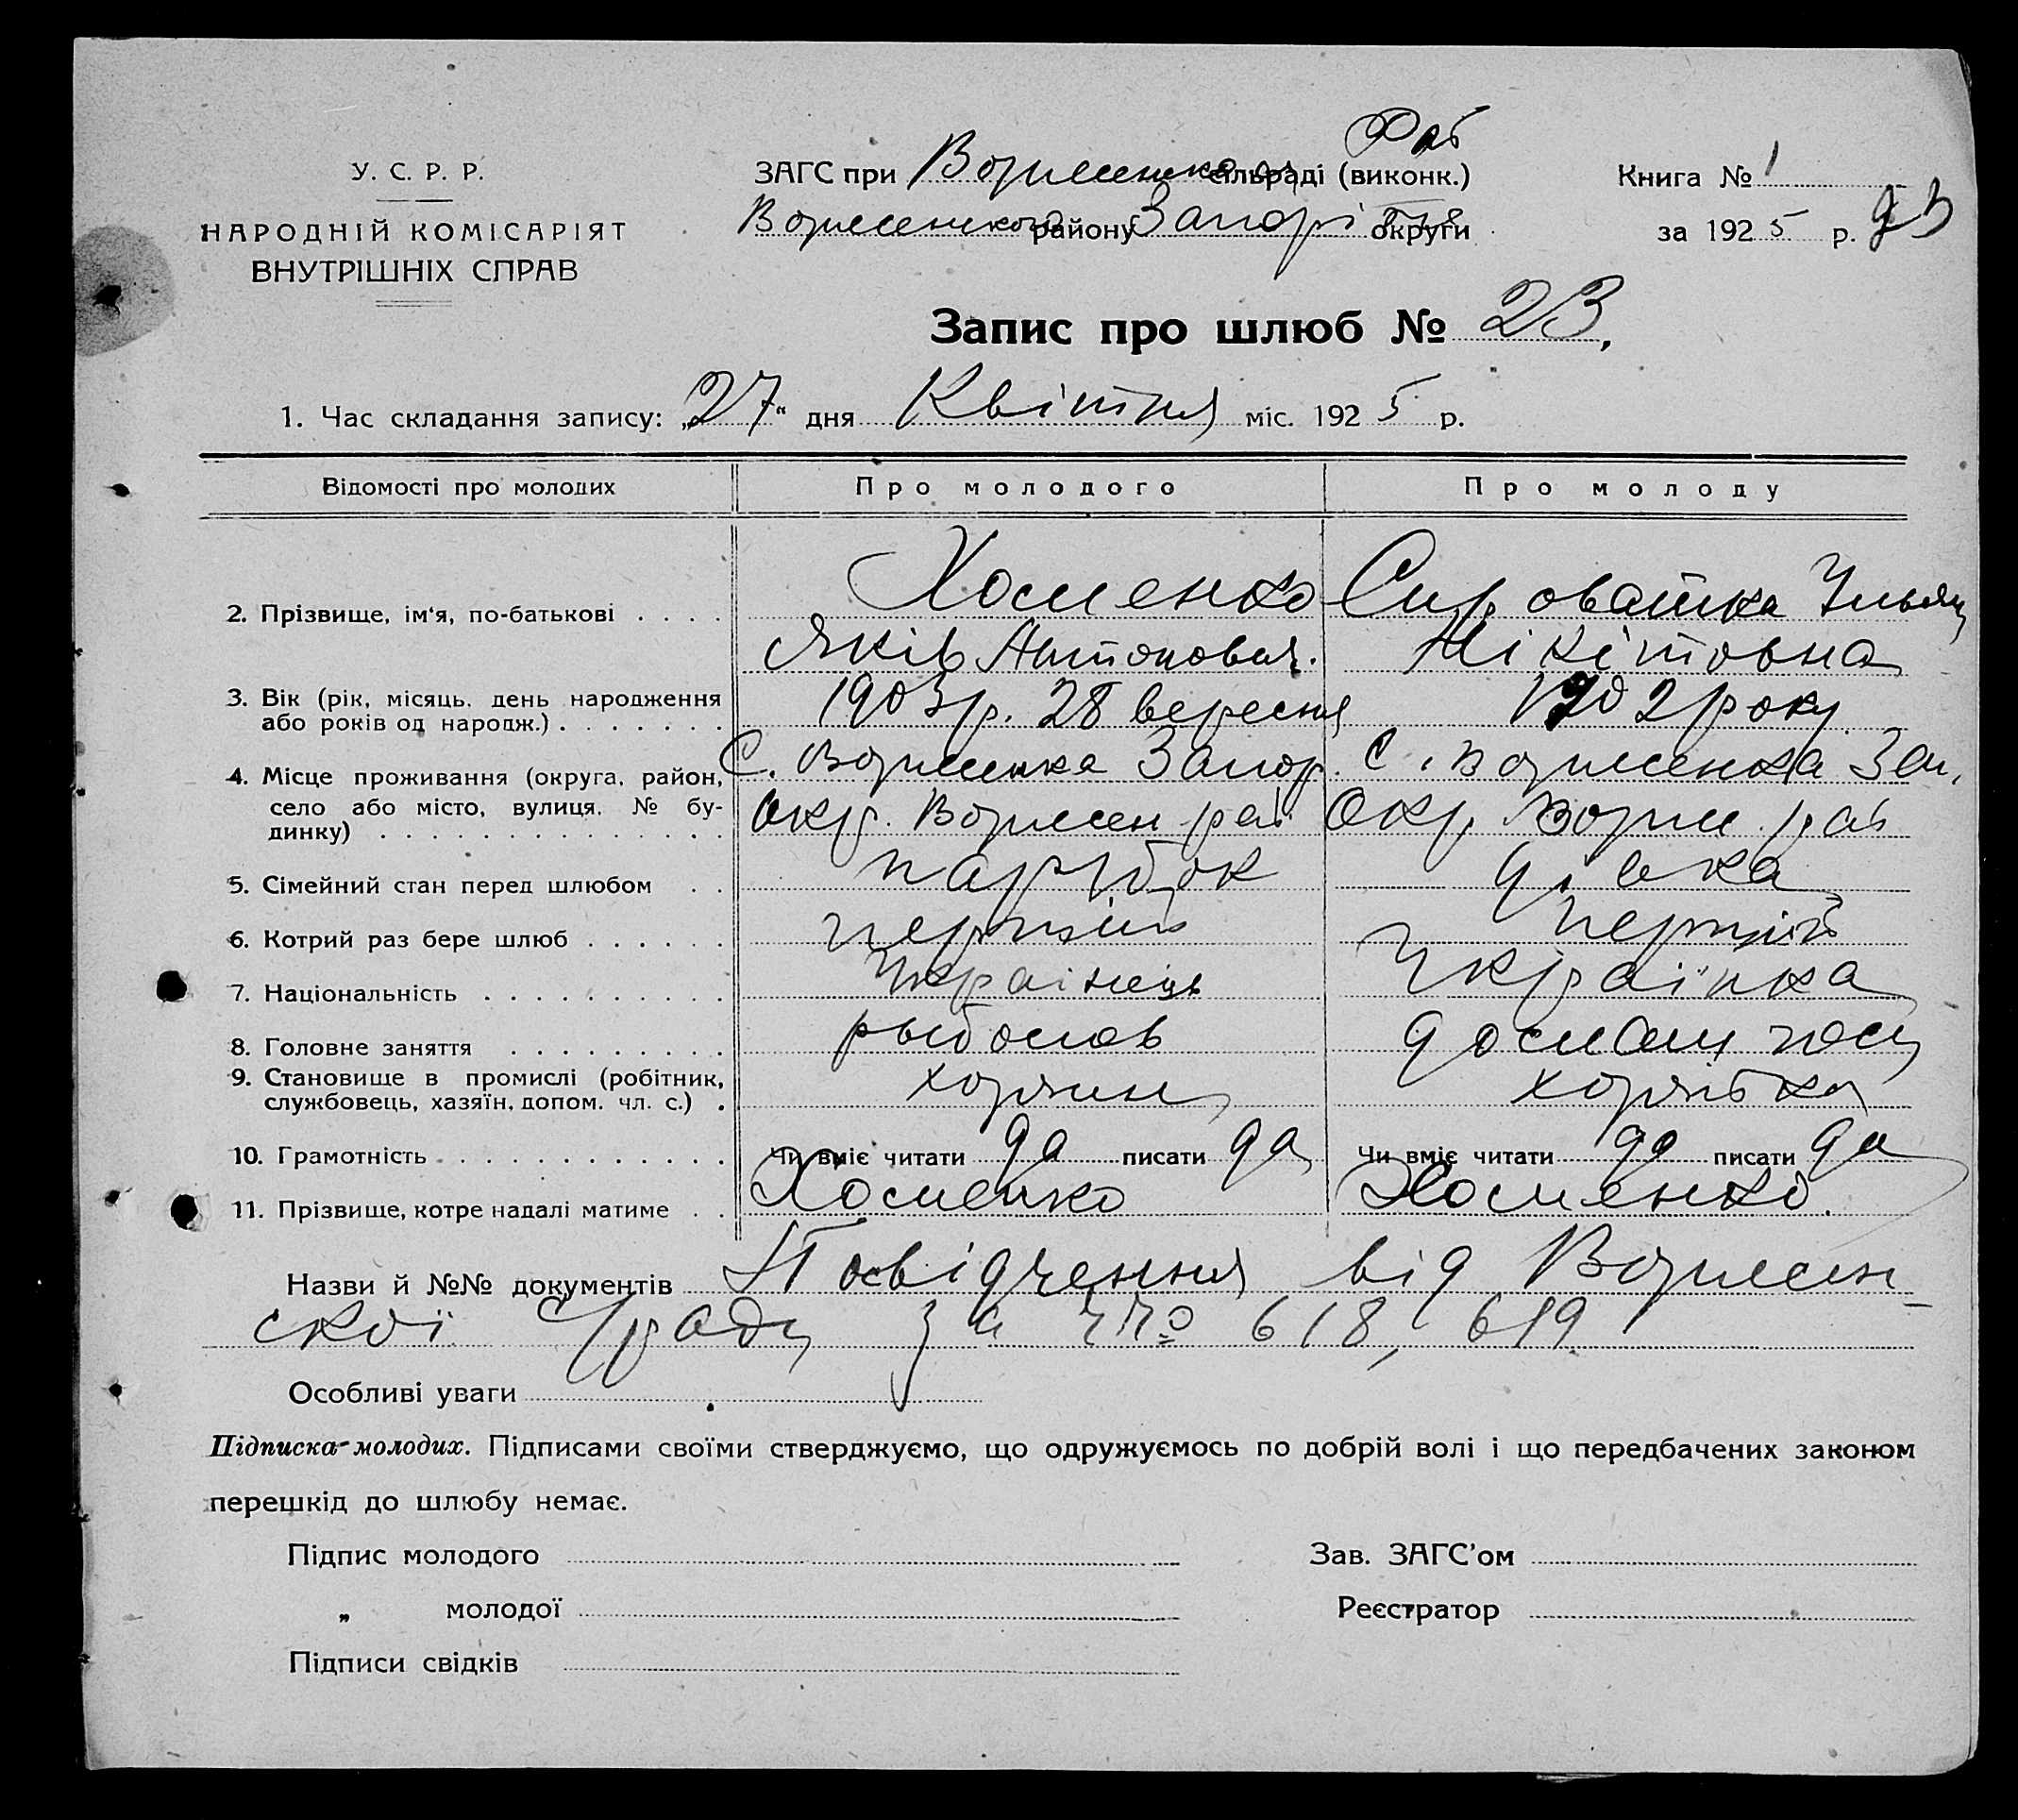 Рай
У. С. Р. Р. ЗАГС при сільраді (виконк.) Книга № 1
НАРОДНІЙ КОМІСАРІЯТ району Запоріз округи за 1925 р. 23
ВНУТРІШНІХ СПРАВ
Запис про шлюб № 23,
1. Час складання запису: „27" дня Квітня міс. 1925 р.
Відомості про молодих Про молодого Про молоду
2. Прізвище, ім'я, по-батькові . . . . Хоменко Сироватка Ульяна
Яків Антонович. Нікітовна
3. Вік (рік, місяць, день народження 1903 р. 28 вересня 1902 року
або років од народж.) . . . . . . .
4. Місце проживання (округа, район, С. Запор. С.
село або місто, вулиця, № бу- окр. рай окр. рай
динку) . . . . . . . . . . . . . .
5. Сімейний стан перед шлюбом . . парубок дівка
6. Котрий раз бере шлюб . . . . . . перший перший
7. Національність . . . . . . . . . . Українець Українка
8. Головне заняття . . . . . . . . . рыболов
9. Становище в промислі (робітник,
службовець, хазяїн, допом. чл. с.) .
10. Грамотність . . . . . . . . . . . . Чи вміє читати да писати да Чи вміє читати да писати да
11. Прізвище, котре надалі матиме . . Хоменко Хоменко.
Назви й №№ документів Посвідчення від
ської с/ради за № 618, 619
Особливі уваги
Підписка молодих. Підписами своїми стверджуємо, що одружуємось по добрій волі і що передбачених законом
перешкід до шлюбу немає.
Підпис молодого Зав. ЗАГС'ом
„ молодої Реєстратор
Підписи свідків